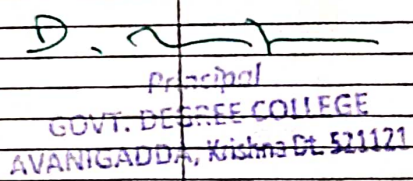 D.
Principal
GOVT. DEGREE COLLEGE
AVANIGADDA, Krishna Dt. 521121